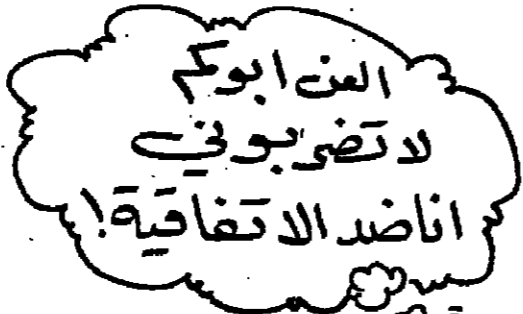 العن ابوكم
لا تضربوني
انا ضد الاتفاقية!